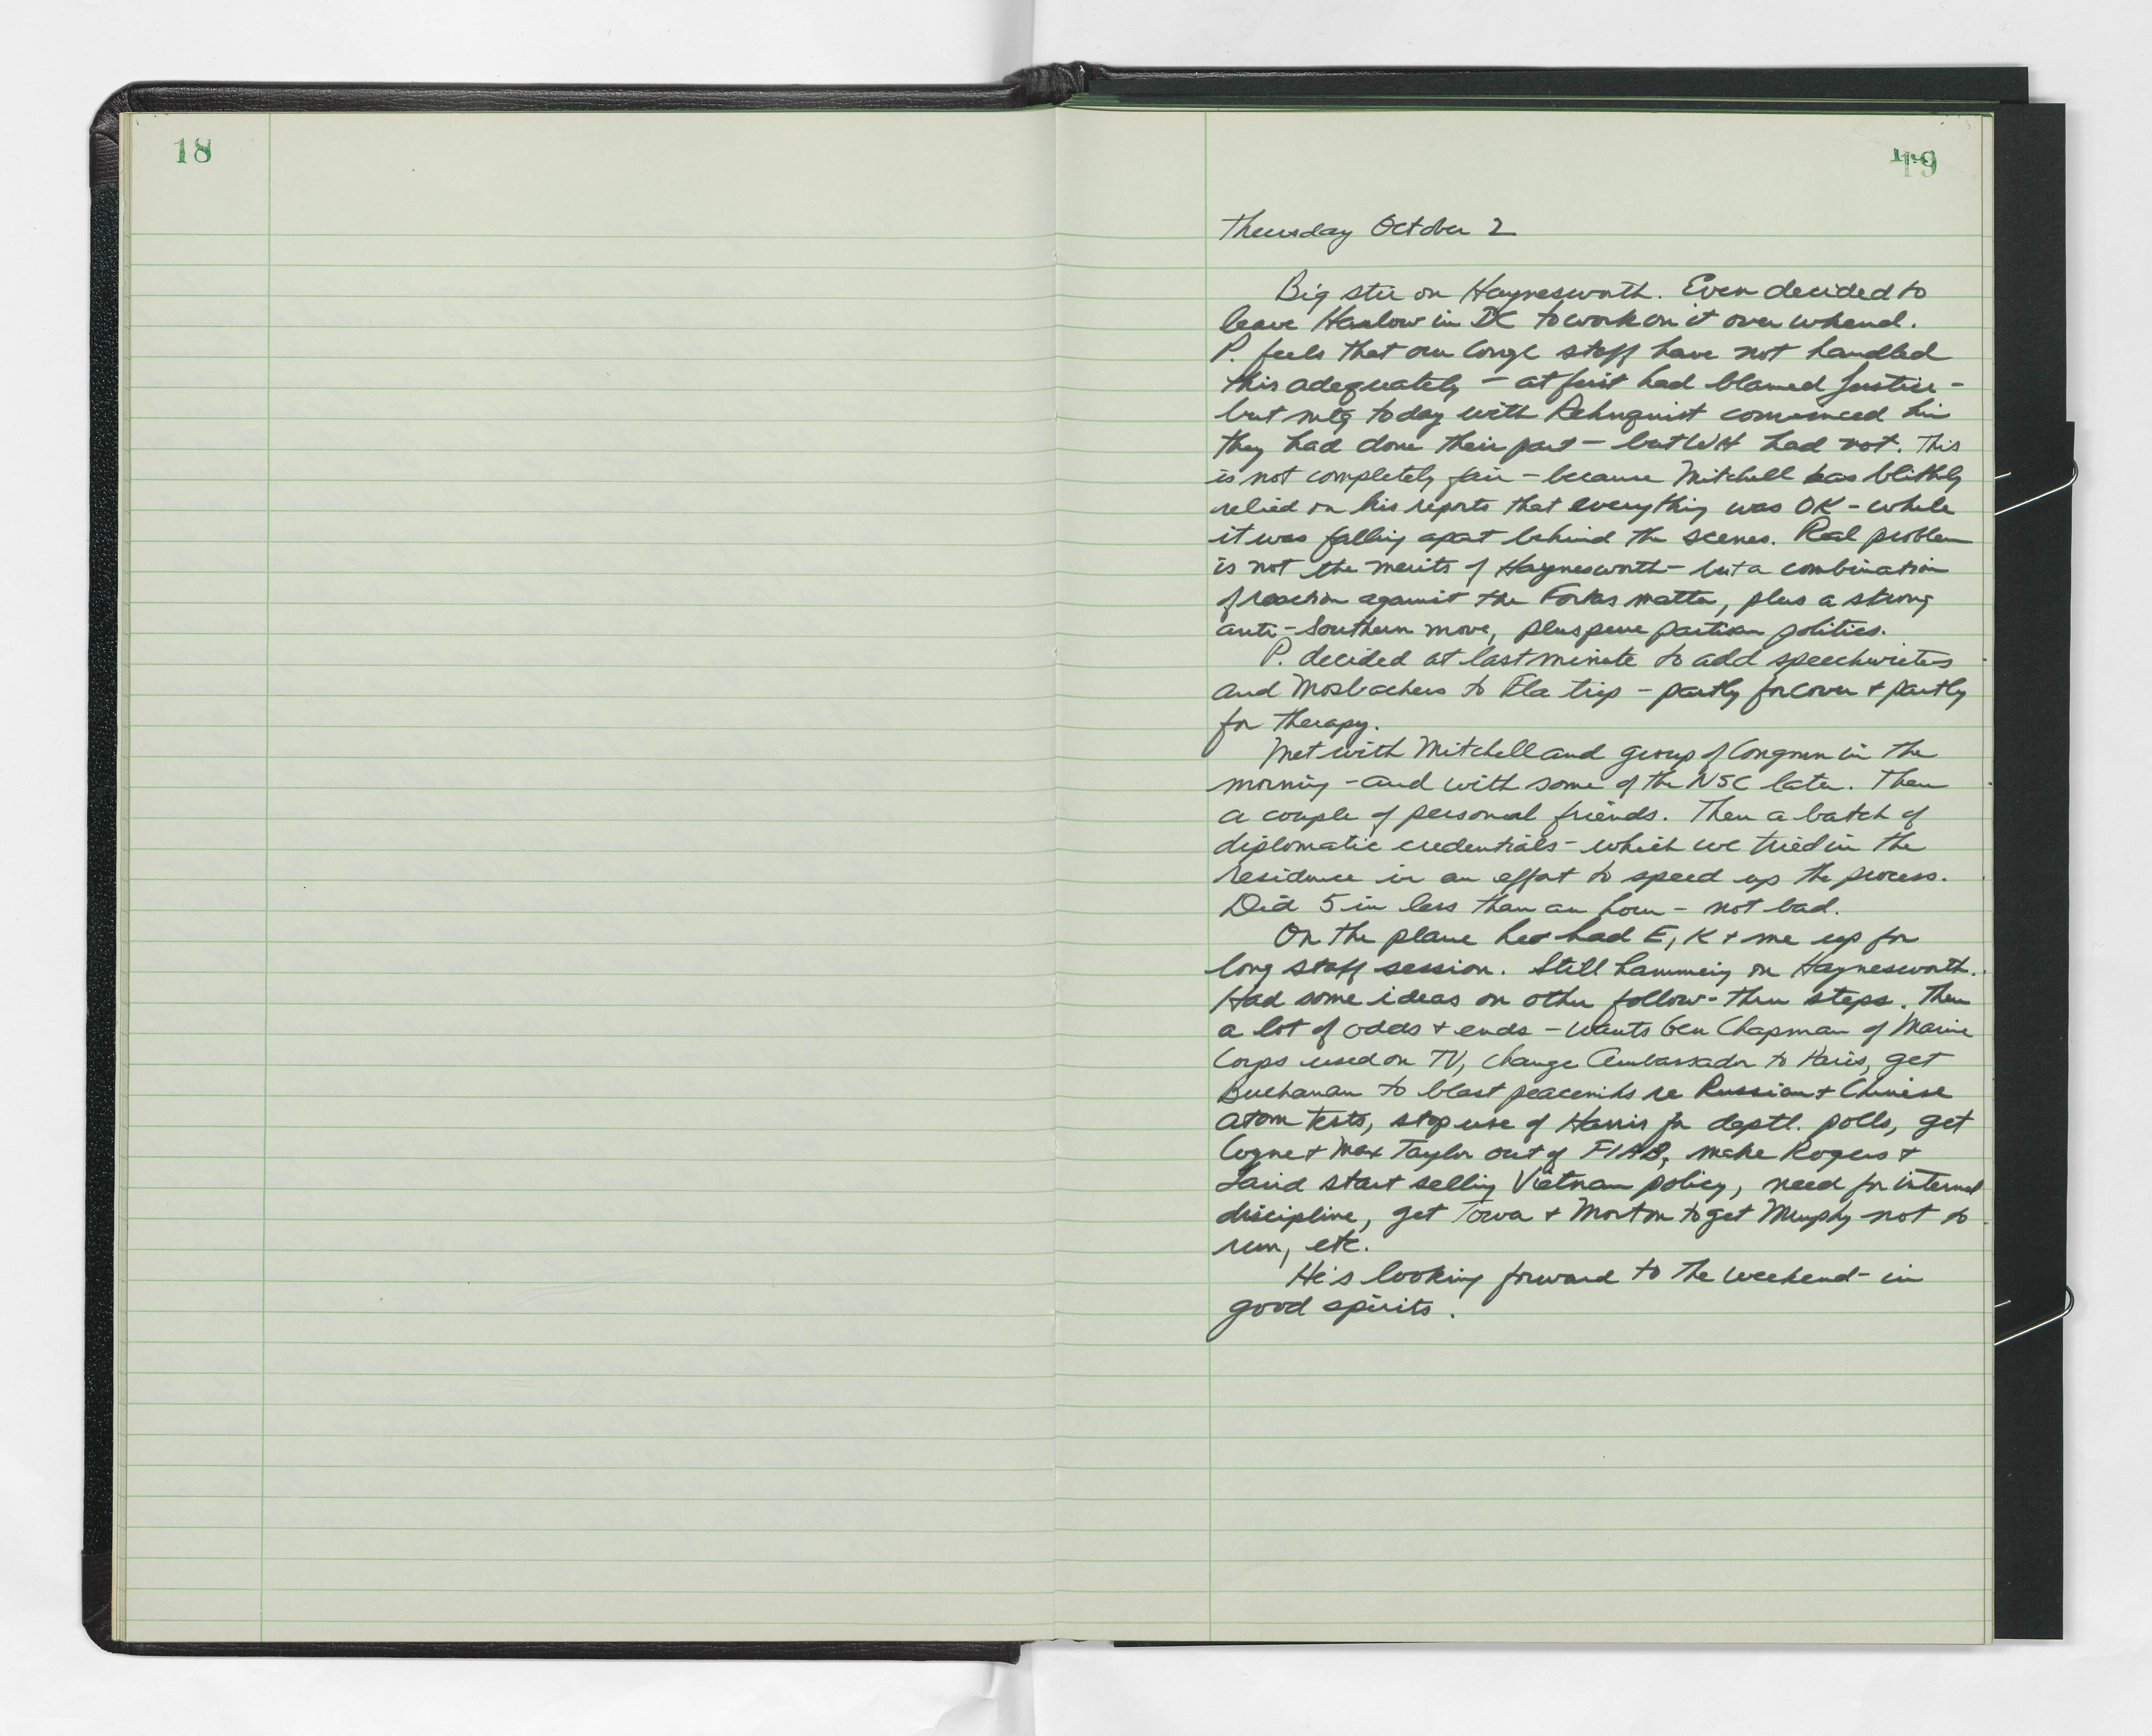 18
19
Thursday October 2
Big stir on Haynesworth. Even decided to
leave Harlow in DC to work on it over wkend.
P. feels that our Congl staff have not handled
this adequately - at first had blamed Justice -
but mtg today with Rehnquist convinced him
they had done their part - but WH had not. This
is not completely fair - because Mitchell has blithely
relied on his reports that everything was OK - while
it was falling apart behind the scenes. Real problem
is not the merits of Haynesworth - but a combination
of reaction against the Fortas matter, plus a strong
anti-Southern move, plus pure partisan politics.
P. decided at last minute to add speechwriters
and Mosbachers to Fla trip - partly for cover & partly
for therapy.
Met with Mitchell and group of Congmn in the
morning - and with some of the NSC later. Then
a couple of personal friends. Then a batch of
diplomatic credentials - which we tried in the
residence in an effort to speed up the process.
Did 5 in less than an hour - not bad.
On the plane he had E, K & me up for
long staff session. Still hammering on Haynesworth.
Had some ideas on other follow-thru steps. Then
a lot of odds & ends - wants Gen Chapman of Marine
Corps used on TV, change Ambassador to Paris, get
Buchanan to blast peaceniks re Russian & Chinese
atom tests, stop use of Harris for deptl. polls, get
Coyne & Max Taylor out of FIAB, make Rogers &
Laird start selling Vietnam policy, need for internal
discipline, get Tower & Morton to get Murphy not to
run, etc.
He's looking forward to the weekend - in
good spirits.